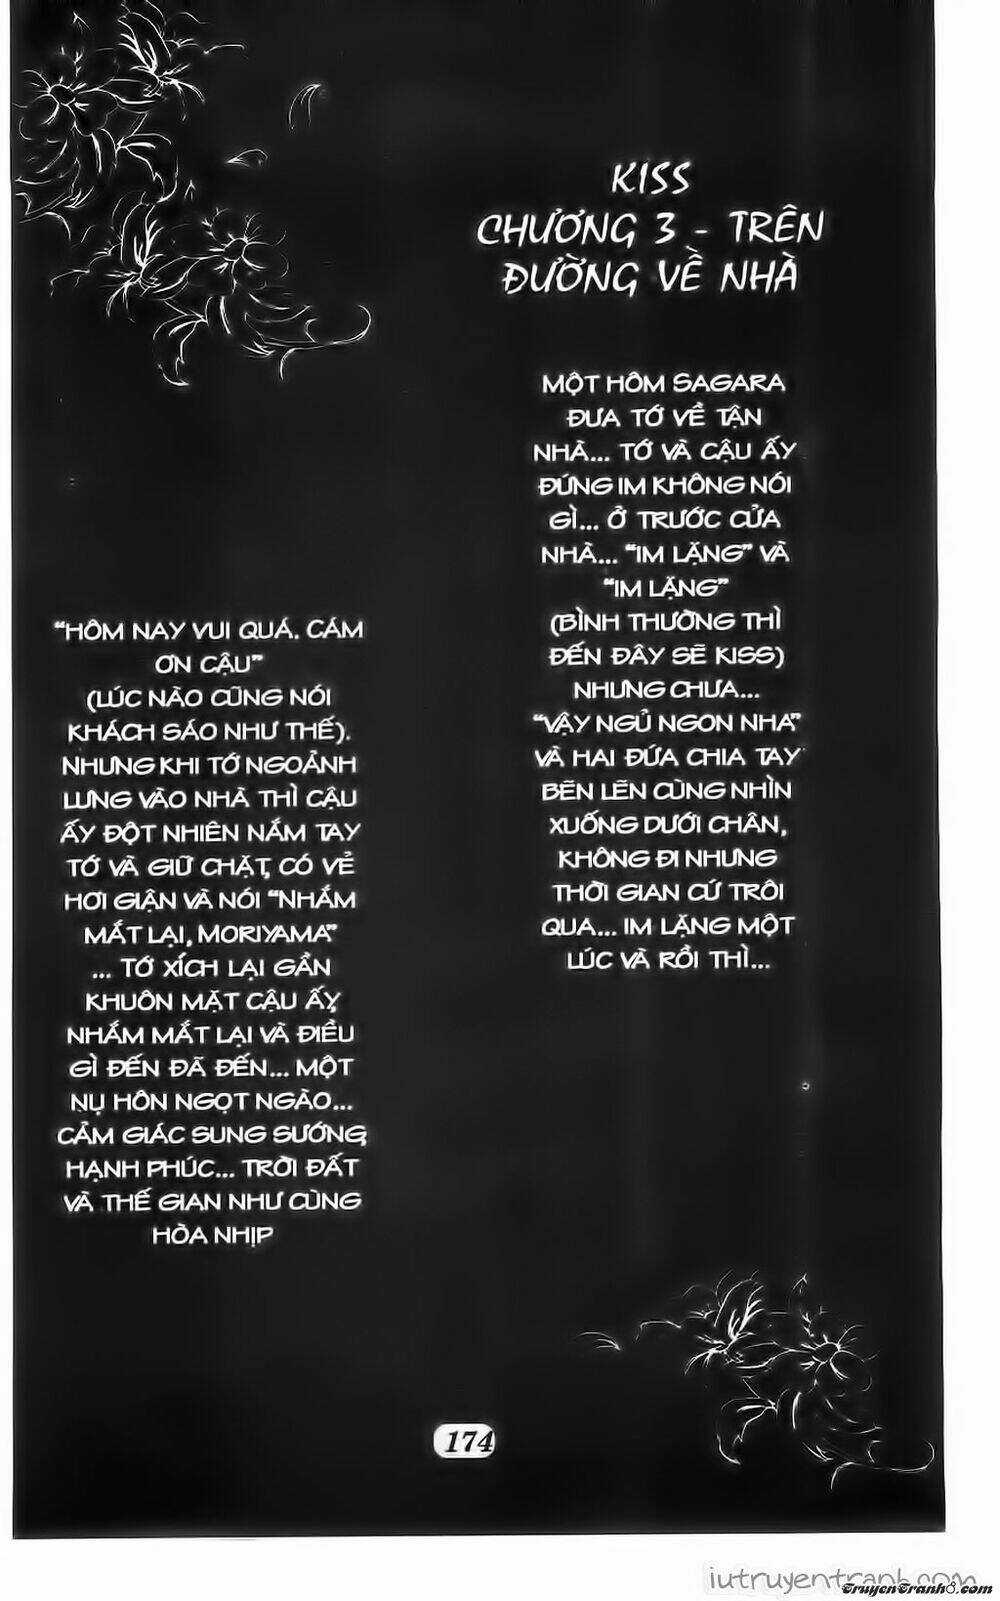 KISS
CHƯƠNG 3 - TRÊN
ĐƯỜNG VỀ NHÀ
MỘT HÔM SAGARA
ĐƯA TỚ VỀ TẬN
NHÀ... TỚ VÀ CẬU ẤY
ĐỨNG IM KHÔNG NÓI
GÌ... Ở TRƯỚC CỬA
NHÀ... "IM LẶNG" VÀ
"IM LẶNG"
(BÌNH THƯỜNG THÌ
ĐẾN ĐÂY SẼ KISS)
NHƯNG CHƯA...
"VẬY NGỦ NGON NHA"
VÀ HAI ĐỨA CHIA TAY
BẼN LẼN CÙNG NHÌN
XUỐNG DƯỚI CHÂN,
KHÔNG ĐI NHƯNG
THỜI GIAN CỨ TRÔI
QUA... IM LẶNG MỘT
LÚC VÀ RỒI THÌ...
"HÔM NAY VUI QUÁ. CÁM
ƠN CẬU"
(LÚC NÀO CŨNG NÓI
KHÁCH SÁO NHƯ THẾ).
NHƯNG KHI TỚ NGOẢNH
LƯNG VÀO NHÀ THÌ CẬU
ẤY ĐỘT NHIÊN NẮM TAY
TỚ VÀ GIỮ CHẶT, CÓ VẺ
HƠI GIẬN VÀ NÓI "NHẮM
MẮT LẠI, MORIYAMA"
... TỚ XÍCH LẠI GẦN
KHUÔN MẶT CẬU ẤY,
NHẮM MẮT LẠI VÀ ĐIỀU
GÌ ĐẾN ĐÃ ĐẾN... MỘT
NỤ HÔN NGỌT NGÀO...
CẢM GIÁC SUNG SƯỚNG,
HẠNH PHÚC... TRỜI ĐẤT
VÀ THẾ GIAN NHƯ CÙNG
HÒA NHỊP
174
iutruyentranh.com
TruyenTranh8.com